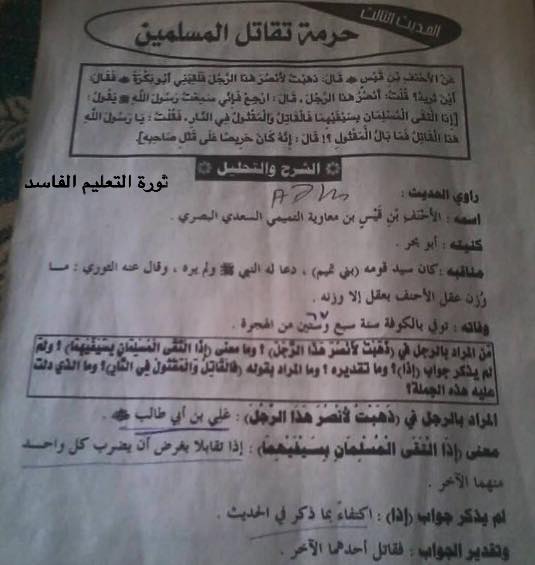 الحديث الثالث
حرمة تقاتل المسلمين
عَنْ الأَحْنَفِ بْنِ قَيْسٍ قَالَ: ذَهَبْتُ لأَنْصُرَ هَذَا الرَّجُلَ فَلَقِيَنِي أَبُو بَكْرَةَ فَقَالَ:
أَيْنَ تُرِيدُ؟ قُلْتُ: أَنْصُرُ هَذَا الرَّجُلَ، قَالَ: ارْجِعْ فَإِنِّي سَمِعْتُ رَسُولَ اللهِ ﷺ يَقُولُ:
[إِذَا الْتَقَى الْمُسْلِمَانِ بِسَيْفَيْهِمَا فَالْقَاتِلُ وَالْمَقْتُولُ فِي النَّارِ، فَقُلْتُ: يَا رَسُولَ اللهِ
هَذَا الْقَاتِلُ فَمَا بَالُ الْمَقْتُولِ؟! قَالَ: إِنَّهُ كَانَ حَرِيصًا عَلَى قَتْلِ صَاحِبِهِ].
الشرح والتحليل
ثورة التعليم الفاسد
راوي الحديث:
اسمه: الأحنف بن قَيْس بن معاوية التميمي السعدي البصري.
كنيته: أبو بحر.
مناقبه: كان سيد قومه (بني تميم)، دعا له النبي ﷺ ولم يره، وقال عنه الثوري: ما
وُزن عقل الأحنف بعقل إلا وزنه.
وفاته: توفي بالكوفة سنة سبع وستين من الهجرة.
٦٧
مَن المراد بالرجل في (ذَهَبْتُ لأَنْصُرَ هَذَا الرَّجُلَ)؟ وما معنى (إِذَا الْتَقَى الْمُسْلِمَانِ بِسَيْفَيْهِمَا)؟ ولمَ
لم يذكر جواب (إذا)؟ وما تقديره؟ وما المراد بقوله (فَالْقَاتِلُ وَالْمَقْتُولُ فِي النَّارِ)؟ وما الذي دلت
عليه هذه الجملة؟
المراد بالرجل في (ذَهَبْتُ لأَنْصُرَ هَذَا الرَّجُلَ): علي بن أبي طالب
معنى (إِذَا الْتَقَى الْمُسْلِمَانِ بِسَيْفَيْهِمَا): إذا تقابلا بغرض أن يضرب كل واحد
منهما الآخر.
لم يذكر جواب (إذا): اكتفاءً بما ذكر في الحديث.
وتقدير الجواب: فقاتل أحدهما الآخر.